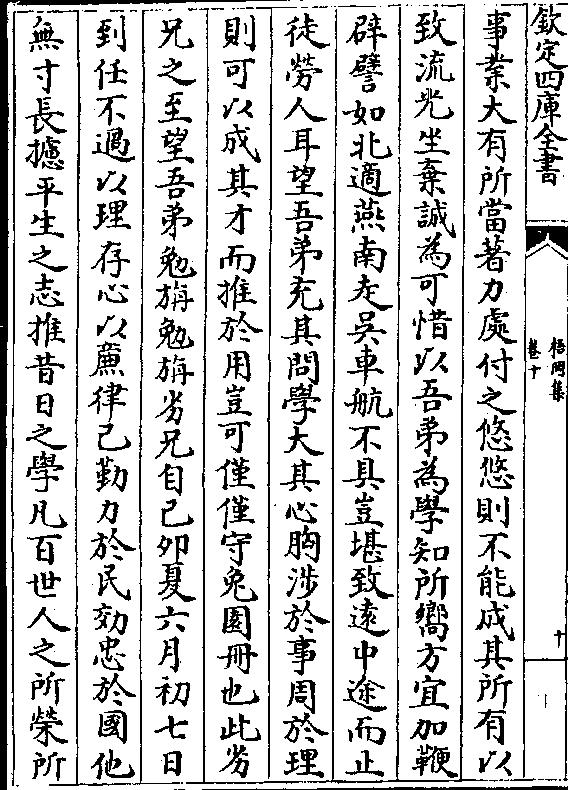 欽定四庫全書
梧岡集
卷十
十
事業大有所當著力處付之悠悠則不能成其所有以
致流光坐棄誠為可惜以吾弟為學知所嚮方宜加鞭
辟譬如北適燕南走吳車航不具豈堪致遠中途而止
徒勞人耳望吾弟充其問學大其心胸涉於事周於理
則可以成其才而推於用豈可僅僅守兔園冊也此劣
兄之至望吾弟勉旃勉旃劣兄自己卯夏六月初七日
到任不過以理存心以亷律己勤力於民効忠於國他
無寸長攄平生之志推昔日之學凡百世人之所榮所